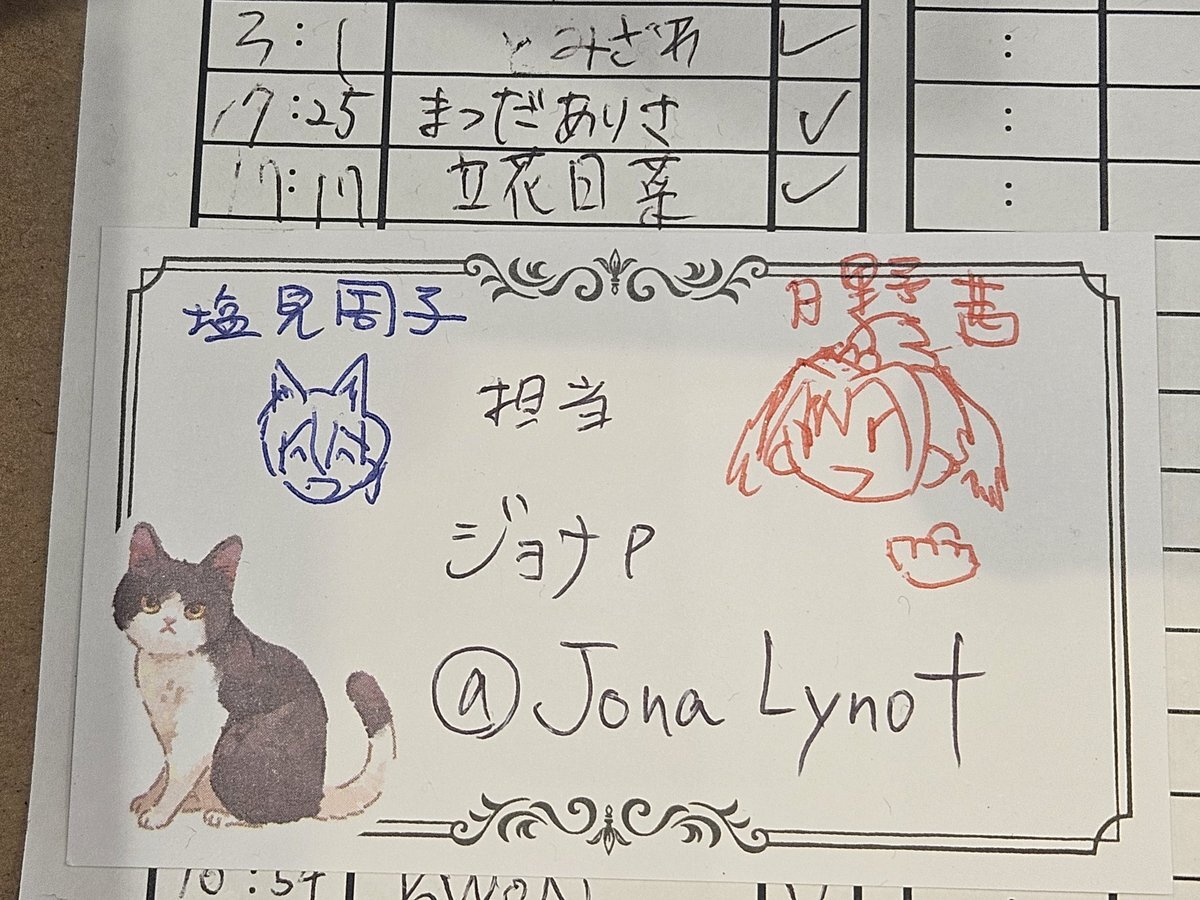 3:1 とみざわ ✓ :
17:25 まつだありさ ✓ :
17:17 立花日菜 ✓ :
塩見周子
日野茜
担当
ジョナP
@Jona Lynot
10:54